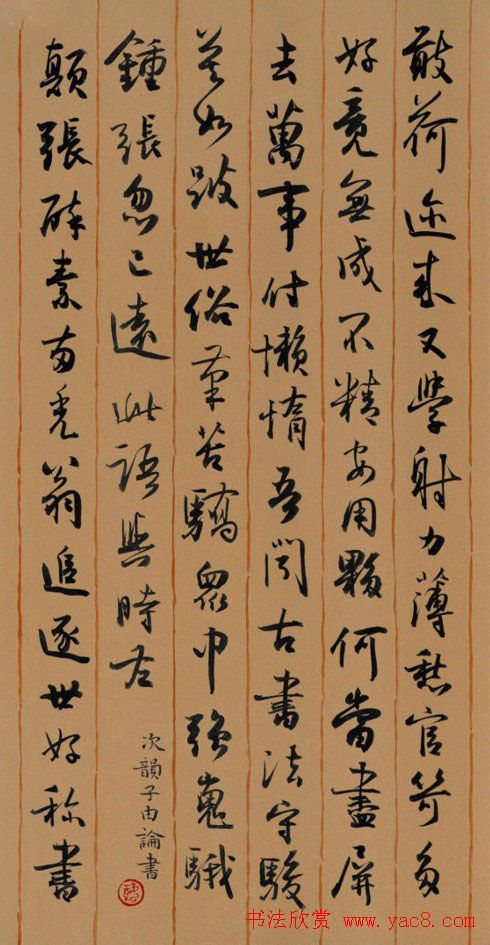 敢荷迩来又學射力薄愁官笴多
好竟無成不精安用夥何當盡屏
去萬事付懶惰吾聞古書法守駿
莫如跛世俗筆苦驕眾中強嵬騀
鍾張忽已遠此語與時左
次韻子由論書
顛張醉素兩禿翁追逐世好称書
书法欣赏 www.yac8.com